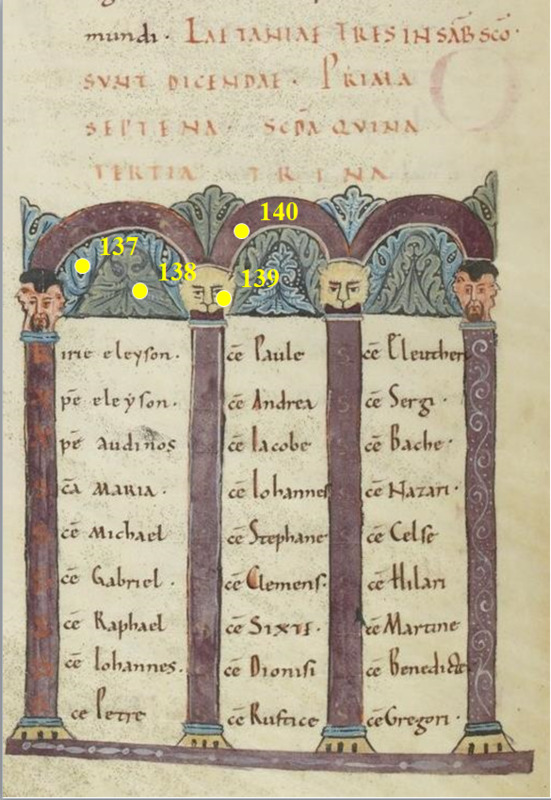 mundi. LAETANIAE TRES IN SAB̄B SC̄O.
SUNT DICENDAE. PRIMA
SEPTENA. SCDA QUINA
TERTIA TRINA
140
137
138
139
irie eleyson.
pē eleẏson.
pē audinos
c̄a MARIA.
cē Michael
cē Gabriel.
cē Raphael
cē Iohannes.
ce Petre
cē Paule
cē Andrea
cē Iacobe
cē Iohannes
cē Stephane
cē Clemens.
cē SIXTE.
cē Dionisi
cē Rustice
cē Eleutheri
cē Sergi.
cē Bache.
cē Nazari.
cē Celse
cē Hilari
cē Martine
cē Benedicte
cē Gregori.